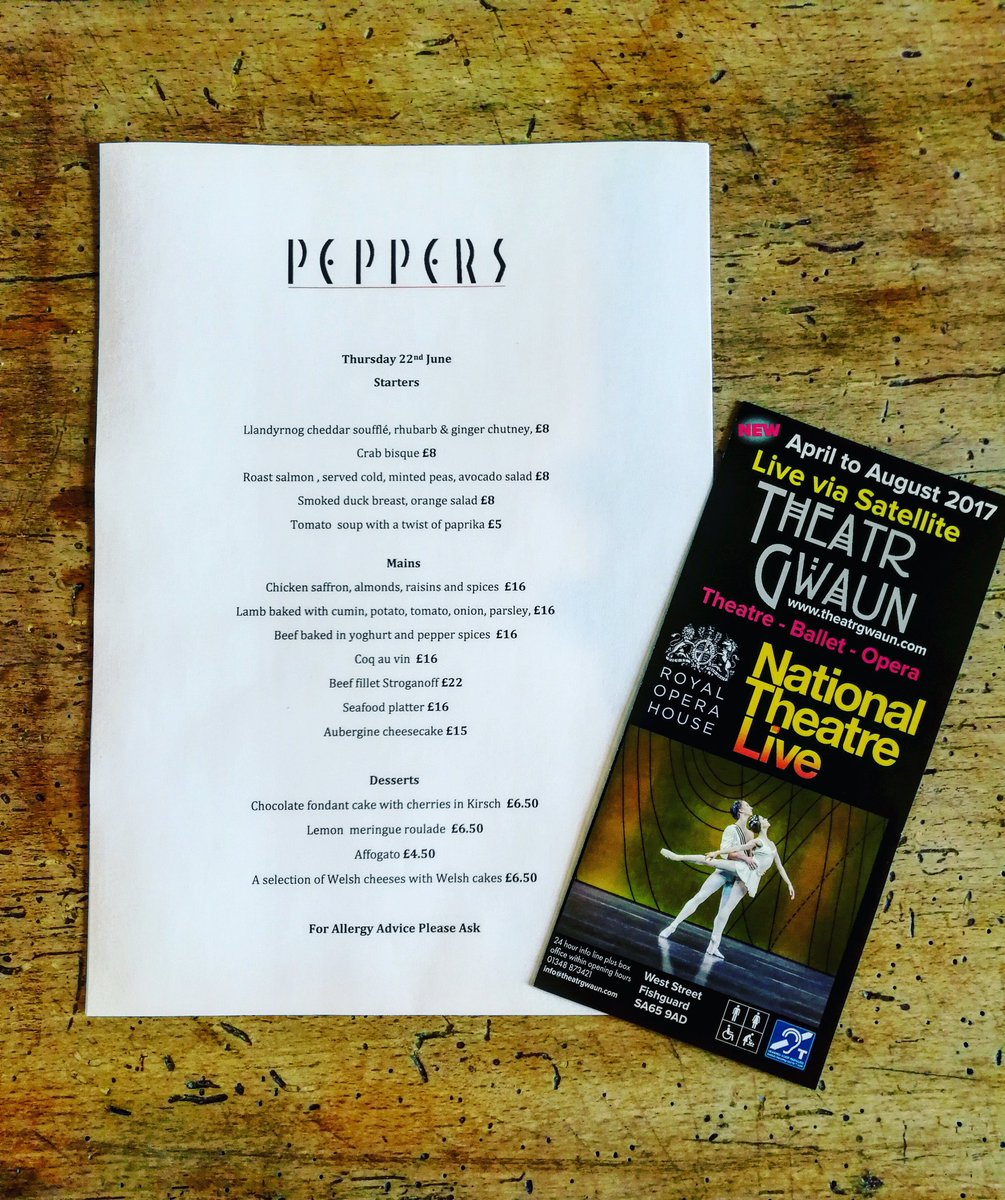 PEPPERS
Thursday 22nd June
Starters
Llandyrnog cheddar soufflé, rhubarb & ginger chutney, £8
Crab bisque £8
Roast salmon , served cold, minted peas, avocado salad £8
Smoked duck breast, orange salad £8
Tomato soup with a twist of paprika £5
Mains
Chicken saffron, almonds, raisins and spices £16
Lamb baked with cumin, potato, tomato, onion, parsley, £16
Beef baked in yoghurt and pepper spices £16
Coq au vin £16
Beef fillet Stroganoff £22
Seafood platter £16
Aubergine cheesecake £15
Desserts
Chocolate fondant cake with cherries in Kirsch £6.50
Lemon meringue roulade £6.50
Affogato £4.50
A selection of Welsh cheeses with Welsh cakes £6.50
For Allergy Advice Please Ask
NEW
April to August 2017
Live via Satellite
THEATR
GWAUN
www.theatrgwaun.com
Theatre - Ballet - Opera
ROYAL
OPERA
HOUSE
National
Theatre
Live
24 hour info line plus box
office within opening hours
01348 873421
info@theatrgwaun.com
West Street
Fishguard
SA65 9AD
T